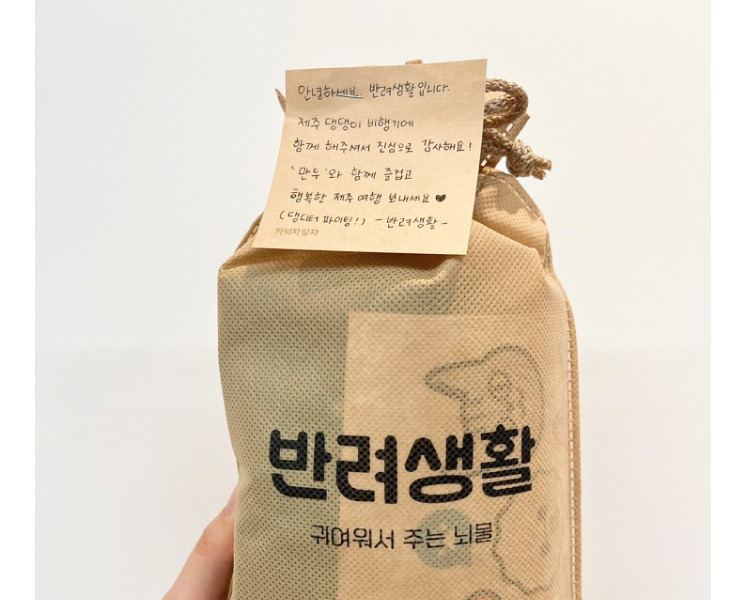 안녕하세요. 반려생활입니다.
제주 댕댕이 비행기에
함께 해주셔서 진심으로 감사해요!
'만두'와 함께 즐겁고
행복한 제주여행 보내세요 ♥
(댕디터 파이팅!) - 반려생활 -
까먹지말자
반려생활
귀여워서 주는 뇌물